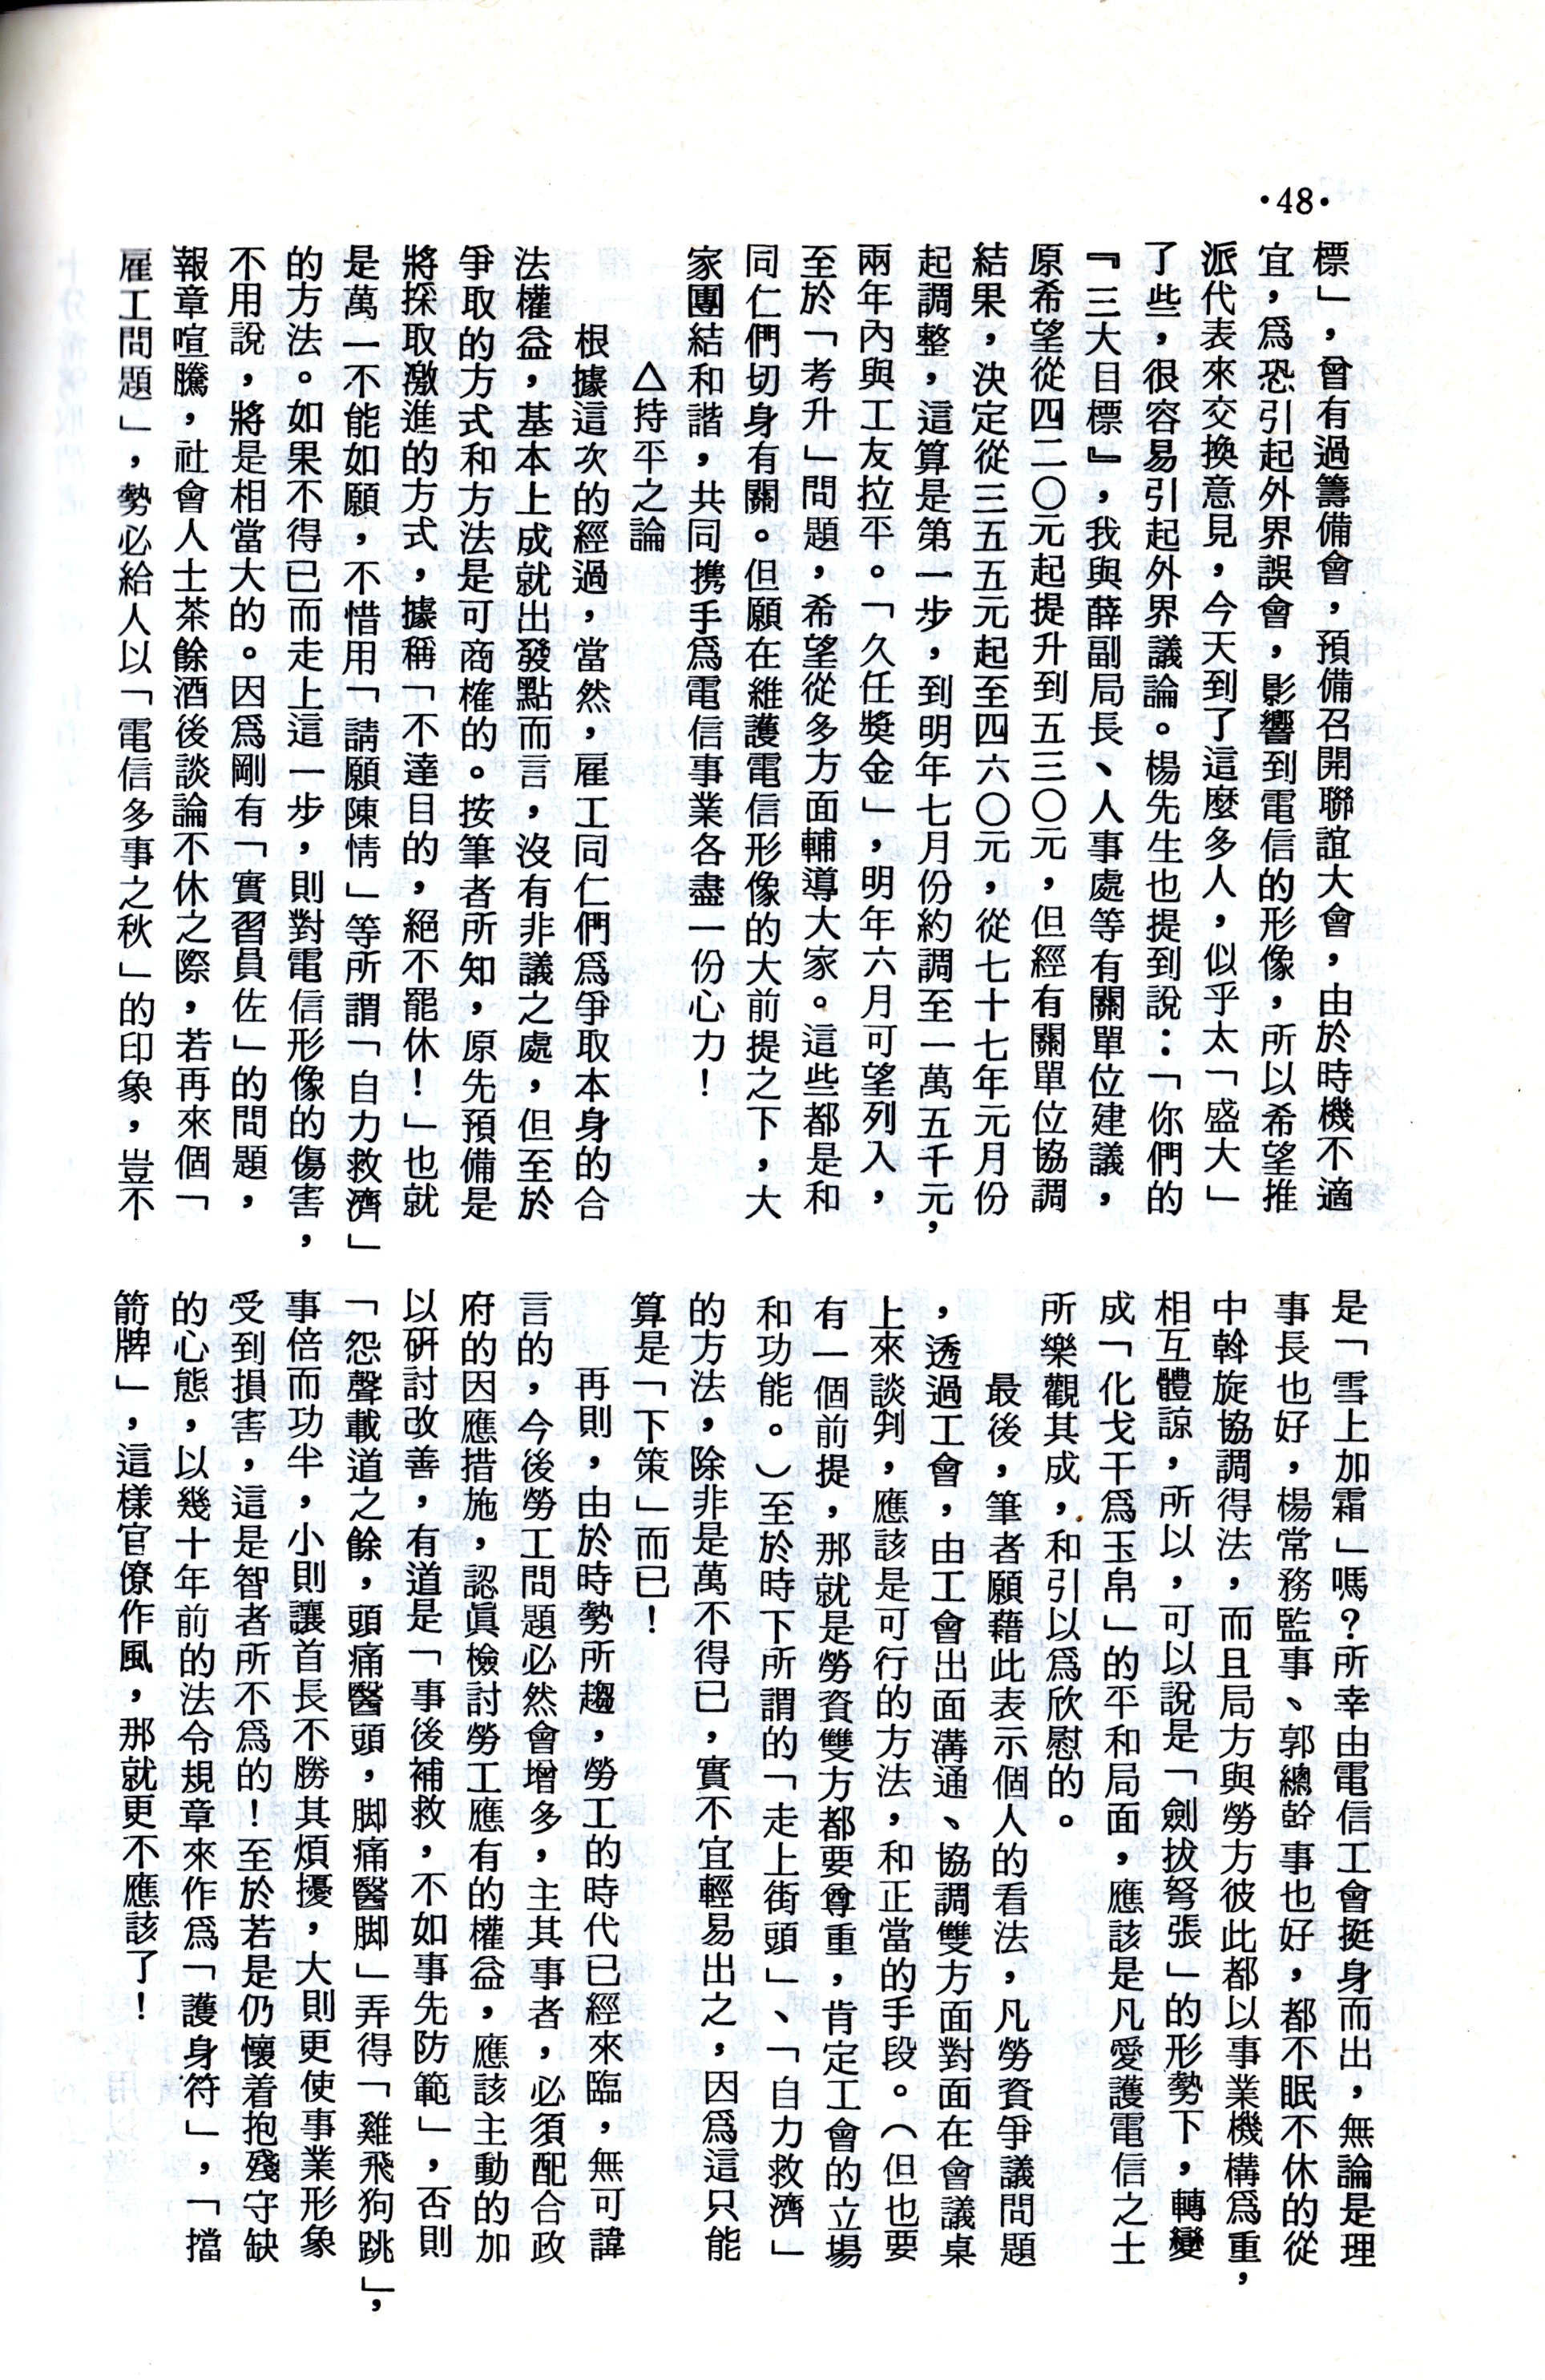 •48•
標」，會有過籌備會，預備召開聯誼大會，由於時機不適
宜，爲恐引起外界誤會，影響到電信的形像，所以希望推
派代表來交換意見，今天到了這麼多人，似乎太「盛大」
了些，很容易引起外界議論。楊先生也提到說：「你們的
『三大目標』，我與薛副局長、人事處等有關單位建議，
原希望從四二〇元起提升到五三〇元，但經有關單位協調
結果，決定從三五五元起至四六〇元，從七十七年元月份
起調整，這算是第一步，到明年七月份約調至一萬五千元，
兩年內與工友拉平。「久任獎金」，明年六月可望列入，
至於「考升」問題，希望從多方面輔導大家。這些都是和
同仁們切身有關。但願在維護電信形像的大前提之下，大
家團結和諧，共同携手爲電信事業各盡一份心力！
△持平之論
根據這次的經過，當然，雇工同仁們爲爭取本身的合
法權益，基本上成就出發點而言，沒有非議之處，但至於
爭取的方式和方法是可商榷的。按筆者所知，原先預備是
將採取激進的方式，據稱「不達目的，絕不罷休！」也就
是萬一不能如願，不惜用「請願陳情」等所謂「自力救濟」
的方法。如果不得已而走上這一步，則對電信形像的傷害，
不用說，將是相當大的。因爲剛有「實習員佐」的問題，
報章喧騰，社會人士茶餘酒後談論不休之際，若再來個「
雇工問題」，勢必給人以「電信多事之秋」的印象，豈不
是「雪上加霜」嗎？所幸由電信工會挺身而出，無論是理
事長也好，楊常務監事、郭總幹事也好，都不眠不休的從
中斡旋協調得法，而且局方與勞方彼此都以事業機構爲重，
相互體諒，所以，可以說是「劍拔弩張」的形勢下，轉變
成「化戈干爲玉帛」的平和局面，應該是凡愛護電信之士
所樂觀其成，和引以爲欣慰的。
最後，筆者願藉此表示個人的看法，凡勞資爭議問題
，透過工會，由工會出面溝通、協調雙方面對面在會議桌
上來談判，應該是可行的方法，和正當的手段。（但也要
有一個前提，那就是勞資雙方都要尊重，肯定工會的立場
和功能。）至於時下所謂的「走上街頭」、「自力救濟」
的方法，除非是萬不得已，實不宜輕易出之，因爲這只能
算是「下策」而已！
再則，由於時勢所趨，勞工的時代已經來臨，無可諱
言的，今後勞工問題必然會增多，主其事者，必須配合政
府的因應措施，認眞檢討勞工應有的權益，應該主動的加
以硏討改善，有道是「事後補救，不如事先防範」，否則
「怨聲載道之餘，頭痛醫頭，脚痛醫脚」弄得「雞飛狗跳」，
事倍而功半，小則讓首長不勝其煩擾，大則更使事業形象
受到損害，這是智者所不爲的！至於若是仍懷着抱殘守缺
的心態，以幾十年前的法令規章來作爲「護身符」，「擋
箭牌」，這樣官僚作風，那就更不應該了！